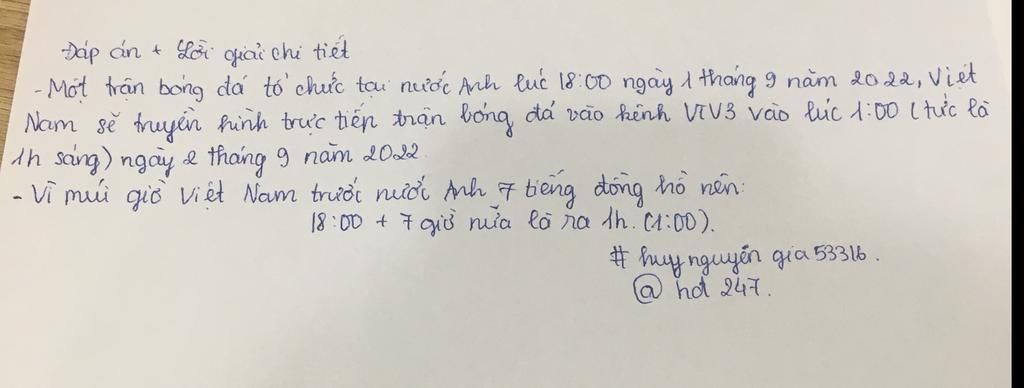 Đáp án + Lời giải chi tiết
- Một trận bóng đá tổ chức tại nước Anh lúc 18:00 ngày 1 tháng 9 năm 2022, Việt
Nam sẽ truyền hình trực tiếp trận bóng đá vào kênh VTV3 vào lúc 1:00 (tức là
1h sáng) ngày 2 tháng 9 năm 2022
- Vì múi giờ Việt Nam trước nước Anh 7 tiếng đồng hồ nên:
18:00 + 7 giờ nữa là ra 1h. (1:00).
# huy nguyễn gia 53316.
@ hd 247.